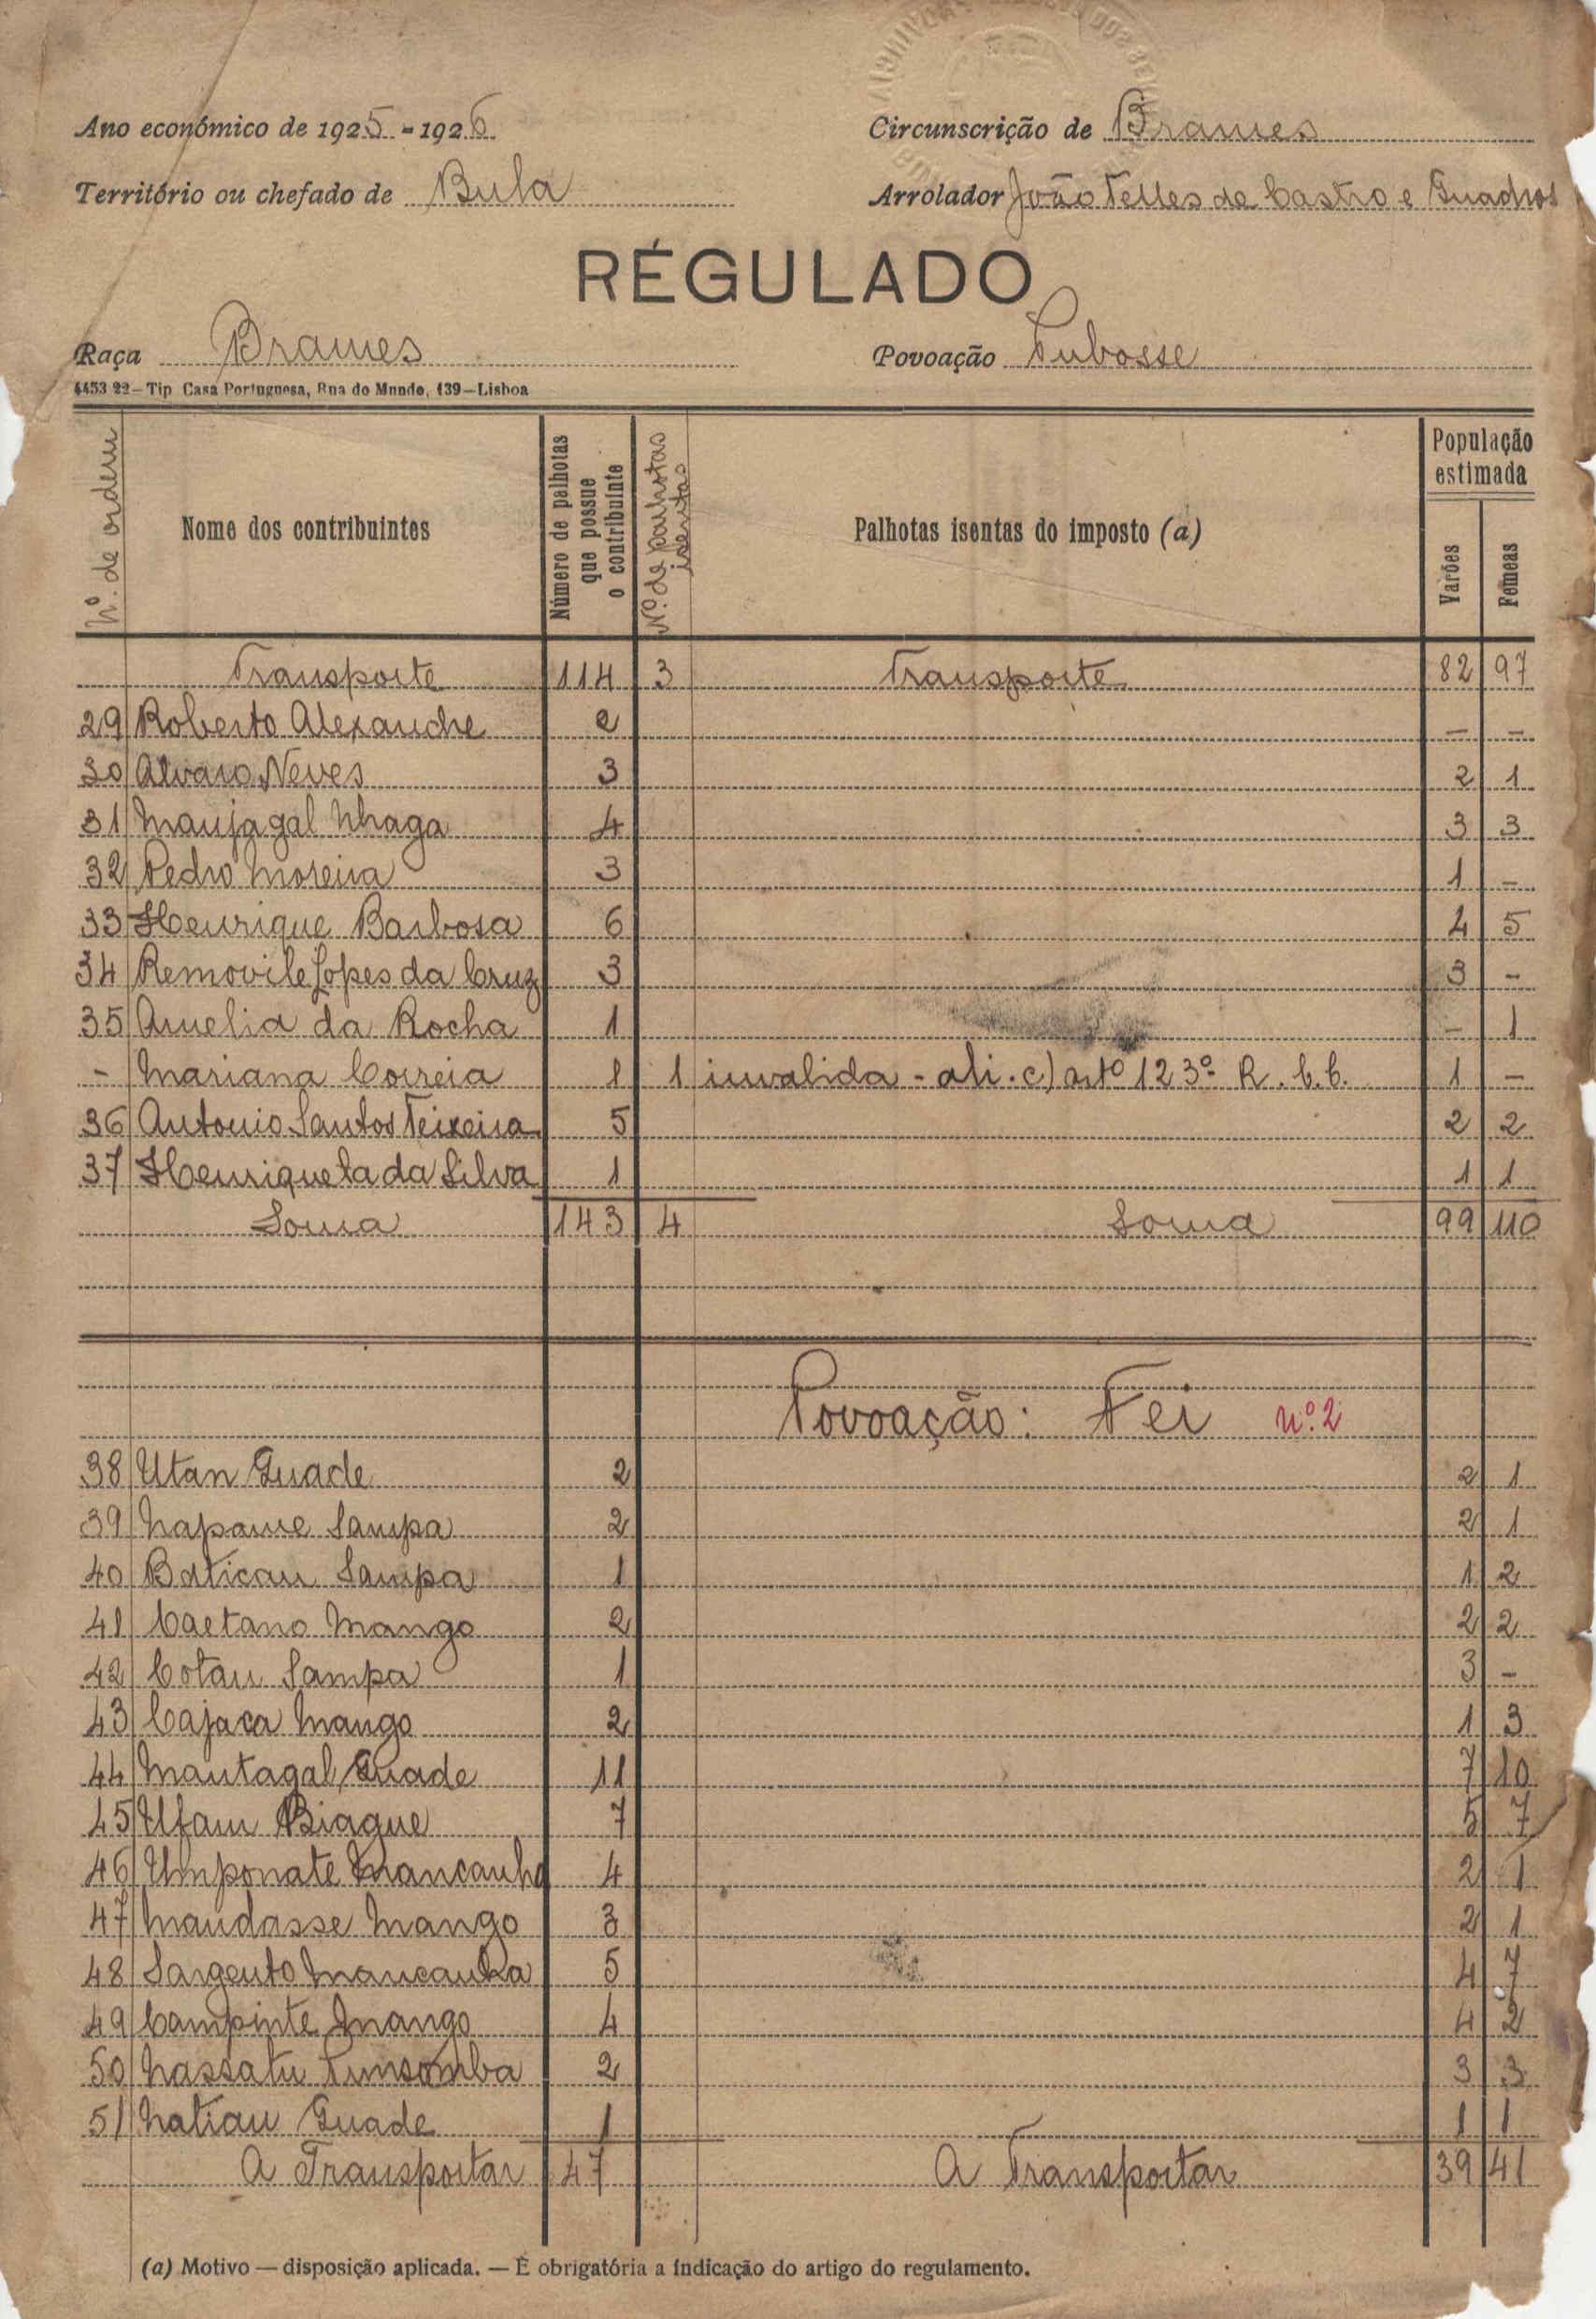 Ano económico de 1925-1926 Circunscrição de Brames
Território ou chefado de Bula Arrolador João Telles de Castro e Quadros
RÉGULADO
Raça Brames Povoação Pubosse
4453 22—Tip Casa Portuguesa, Rua do Mundo, 139—Lisboa
Nº. de ordem Nome dos contribuintes Número de palhotas que possue o contribuinte Nº. de palhotas isentas Palhotas isentas do imposto (a) População estimada Varões Femeas
Transporte 114 3 Transporte 82 97
29 Roberto Alexandre 2 - -
30 Alvaro Neves 3 2 1
31 Manjagal Nhaga 4 3 3
32 Pedro Moreira 3 1 -
33 Henrique Barbosa 6 4 5
34 Removile Lopes da Cruz 3 3 -
35 Amelia da Rocha 1 - 1
- Mariana Correia 1 1 invalida - ali. c) artº 123º R. C. C. 1 -
36 Antonio Santos Teixeira 5 2 2
37 Henriqueta da Silva 1 1 1
Soma 143 4 Soma 99 110
Povoação: Fei nº. 2
38 Utan Quade 2 2 1
39 Napame Sampa 2 2 1
40 Batican Sampa 1 1 2
41 Caetano Mango 2 2 2
42 Cotan Sampa 1 3 -
43 Cajaca Mango 2 1 3
44 Mantagal Quade 11 7 10
45 Ufam Biague 7 5 7
46 Umponate Mancanha 4 2 1
47 Mandasse Mango 3 2 1
48 Sargento Mancanha 5 4 7
49 Campinte Mango 4 4 2
50 Nassatu Punsomba 2 3 3
51 Natian Quade 1 1 1
A Transportar 47 A Transportar 39 41
(a) Motivo — disposição aplicada. — É obrigatória a indicação do artigo do regulamento.